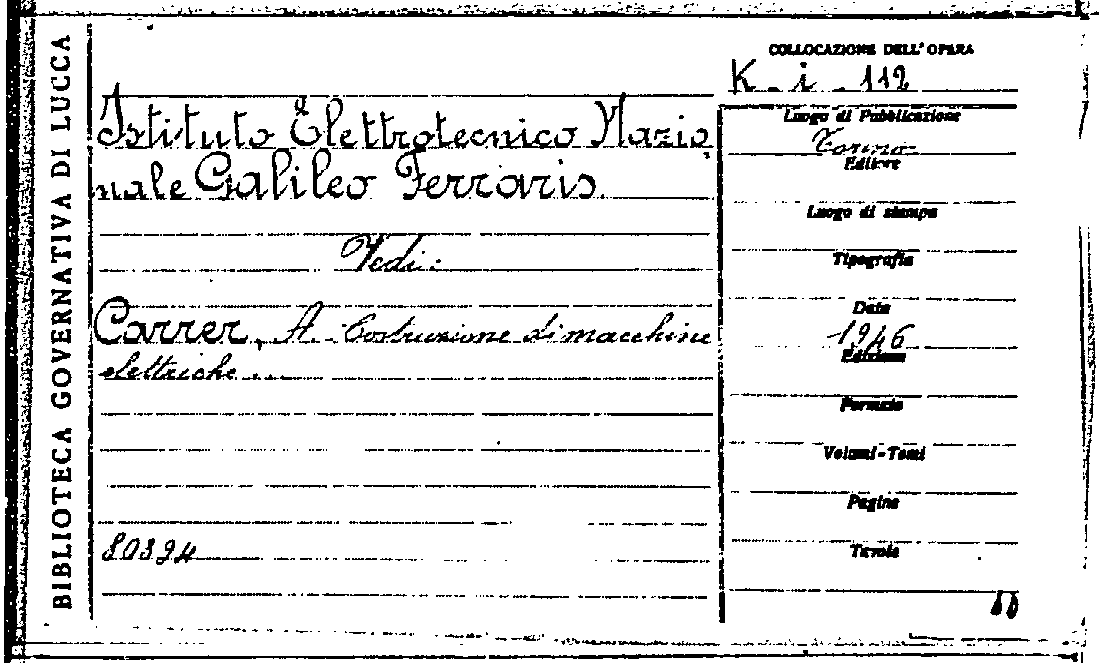 BIBLIOTECA GOVERNATIVA DI LUCCA
COLLOCAZIONE DELL'OPERA
K. i. 112
Istituto Elettrotecnico Nazio
nale Galileo Ferraris
Vedi:
Carrer, A. Costruzione di macchine
elettriche...
80394
Luogo di Pubblicazione
Torino
Editore
Luogo di stampa
Tipografia
Data
1946
Edizione
Formato
Volumi-Tomi
Pagine
Tavole